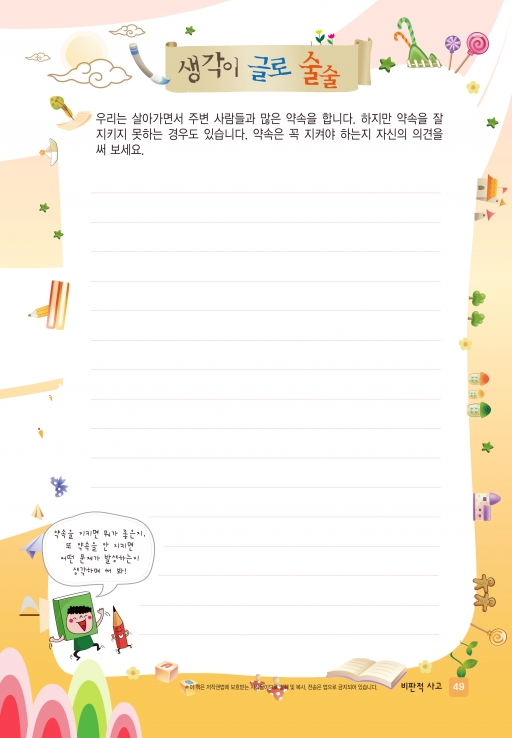 생각이 글로 술술
우리는 살아가면서 주변 사람들과 많은 약속을 합니다. 하지만 약속을 잘
지키지 못하는 경우도 있습니다. 약속은 꼭 지켜야 하는지 자신의 의견을
써 보세요.
약속을 지키면 뭐가 좋은지,
또 약속을 안 지키면
어떤 문제가 발생하는지
생각하며 써 봐!
이 책은 저작권법에 보호받는 및 복사, 전송은 법으로 금지되어 있습니다.
비판적 사고 49